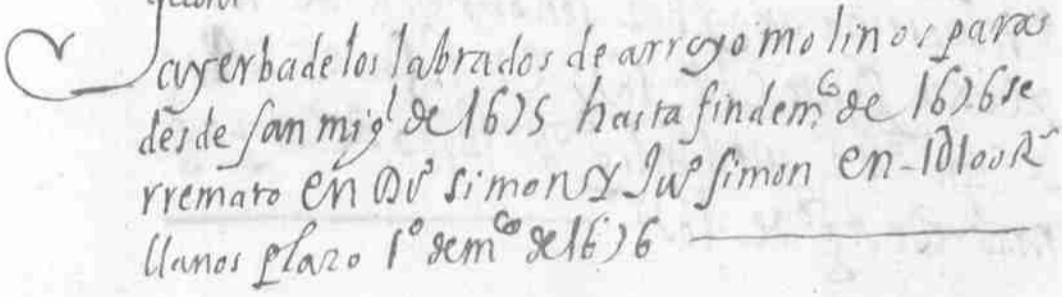 la yerba de los labrados de arroyo molinos para
desde san migl de 1675 hasta fin de mço de 1676 se
rremato en Dº simon Y Juº simon en
llanos plazo 1º de mço de 1676